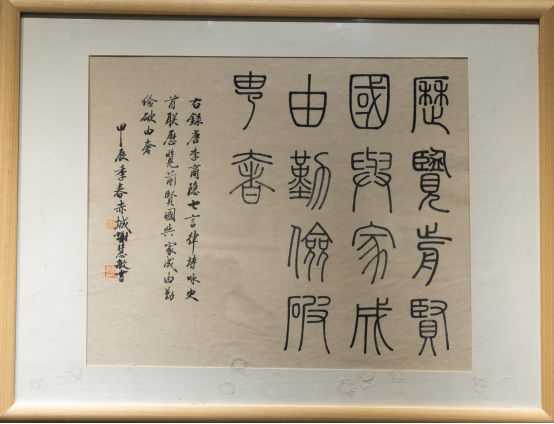 歷覽歬賢
國與家成
由勤儉破
由奢
右錄唐李商隱七言律詩咏史
首联歷覽前賢國與家成由勤
儉破由奢
甲辰季春赤城谢慧敏書